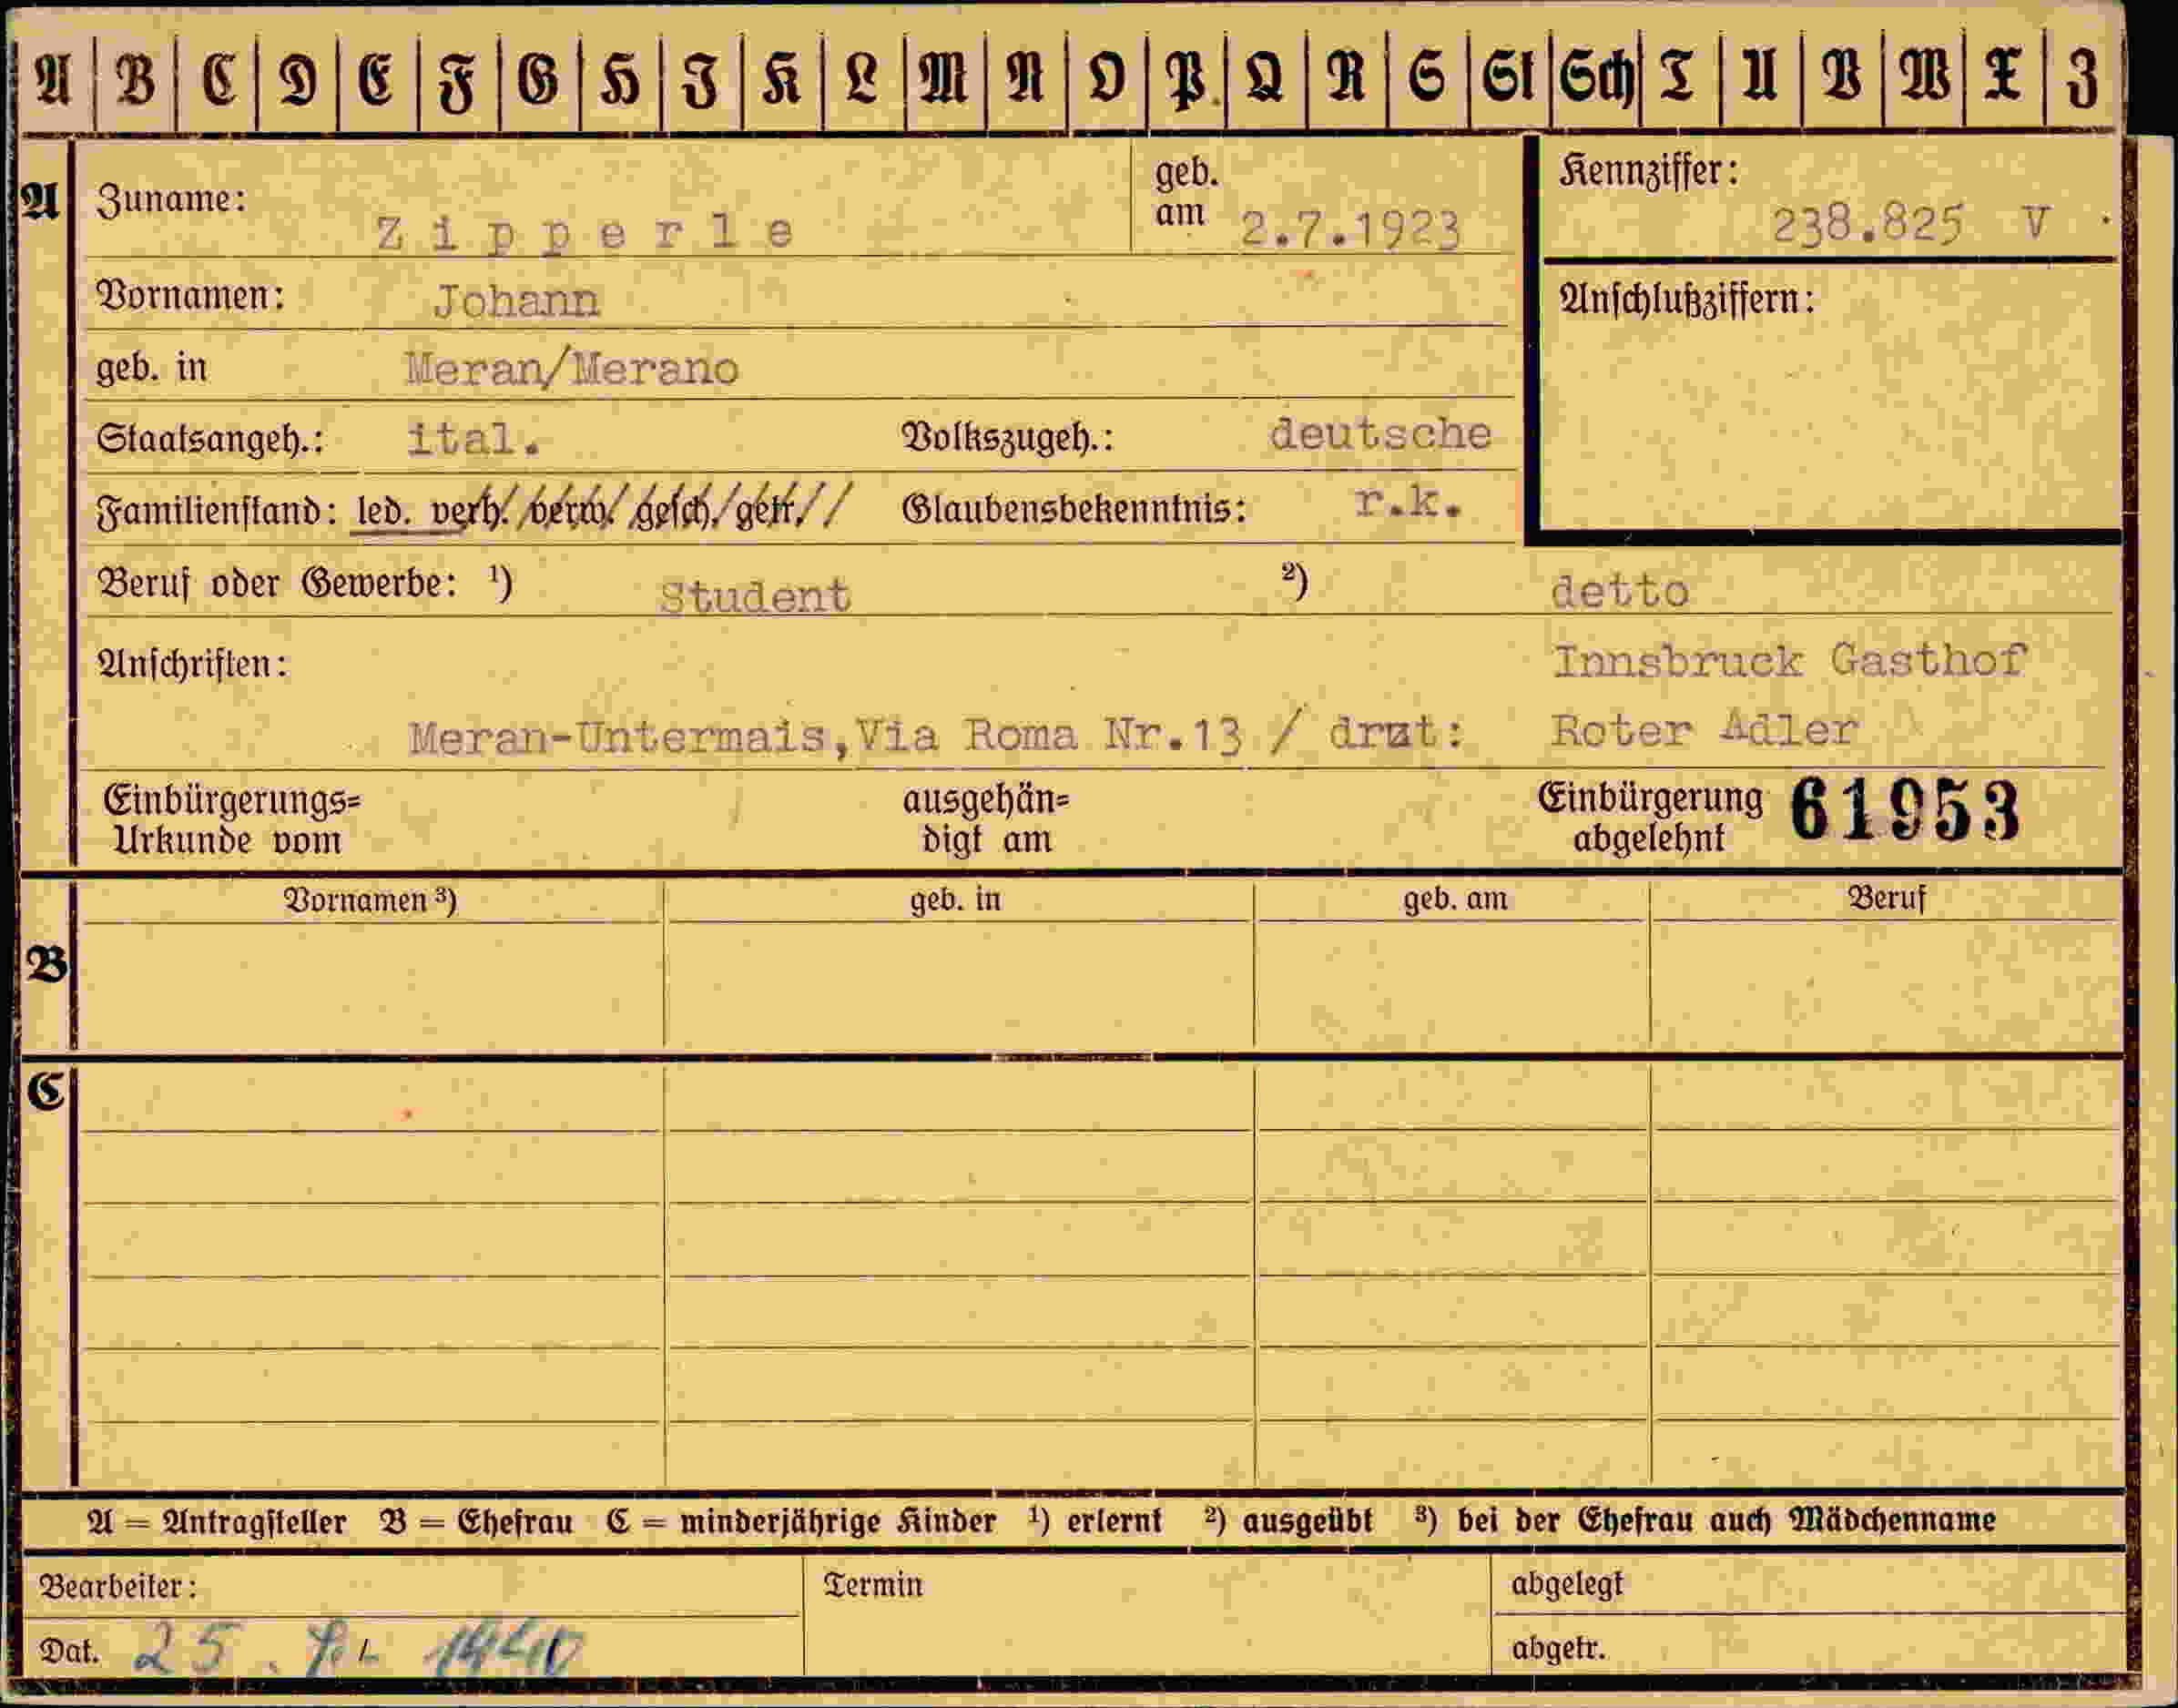 A B C D E F G H I K L M N O P Q R S St Sch T U V W X Z
A Zuname: Zipperle geb. am 2.7.1923 Kennziffer: 238.825 V
Vornamen: Johann Anschlußziffern:
geb. in Meran/Merano
Staatsangeh.: ital. Volkszugeh.: deutsche
Familienstand: led. verh. verw. gesch. getr. Glaubensbekenntnis: r.k.
Beruf oder Gewerbe: ¹) Student ²) detto
Anschriften: Innsbruck Gasthof
Meran-Untermais,Via Roma Nr.13 / drzt: Roter Adler
Einbürgerungs= ausgehän= Einbürgerung 61953
Urkunde vom digt am abgelehnt
Vornamen ³) geb. in geb. am Beruf
B
C
A = Antragsteller B = Ehefrau C = minderjährige Kinder ¹) erlernt ²) ausgeübt ³) bei der Ehefrau auch Mädchenname
Bearbeiter: Termin abgelegt
Dat. 25. 1940 abgetr.